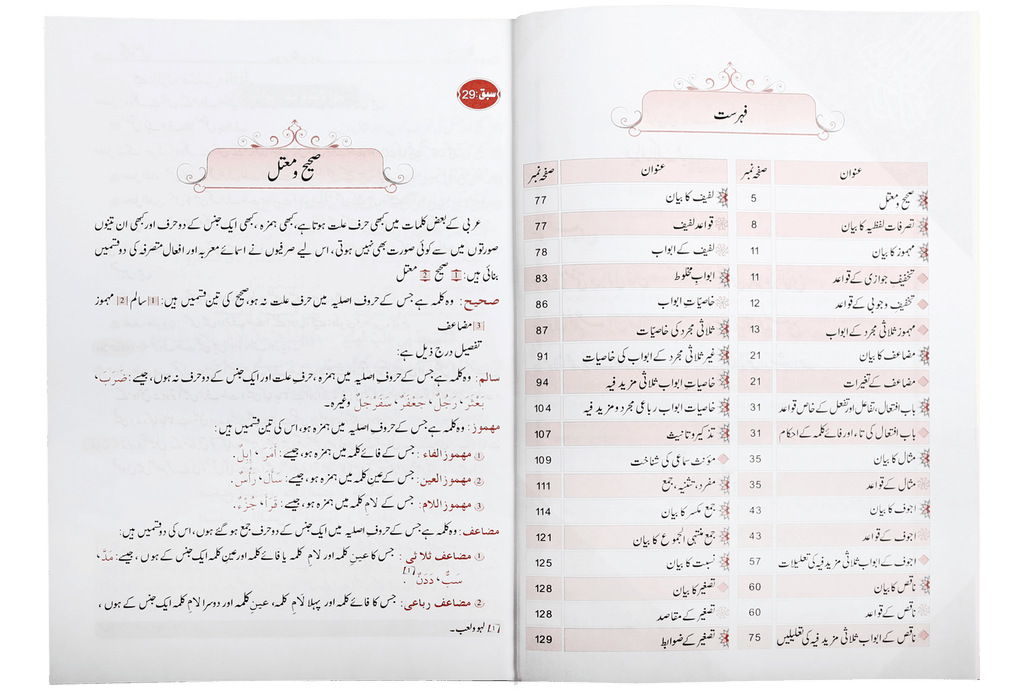 فہرست
عنوان صفحہ نمبر عنوان صفحہ نمبر
صحیح و معتل 5 لفیف کا بیان 77
تصرفات لفظیہ کا بیان 8 قواعد لفیف 77
مہموز کا بیان 11 لفیف کے ابواب 78
تخفیف جوازی کے قواعد 11 ابواب مخلوط 83
تخفیف وجوبی کے قواعد 12 خاصیات ابواب 86
مہموز ثلاثی مجرد کے ابواب 13 ثلاثی مجرد کی خاصیات 87
مضاعف کا بیان 21 غیر ثلاثی مجرد کے ابواب کی خاصیات 91
مضاعف کے تغیرات 21 خاصیاتِ ابواب ثلاثی مزید فیہ 94
باب افتعال، تفاعل اور تفعل کے خاص قواعد 31 خاصیات ابواب رباعی مجرد و مزید فیہ 104
باب افتعال کی تاء اور فائے کلمہ کے احکام 31 تذکیر و تانیث 107
مثال کا بیان 35 مؤنث سماعی کی شناخت 109
مثال کے قواعد 35 مفرد، تثنیہ، جمع 111
اجوف کا بیان 43 جمع مکسر کا بیان 114
اجوف کے قواعد 43 جمع منتہی الجموع کا بیان 121
اجوف کے ابواب ثلاثی مزید فیہ کی تعلیلات 57 نسبت کا بیان 125
ناقص کا بیان 60 تصغیر کا بیان 128
ناقص کے قواعد 60 تصغیر کے مقاصد 128
ناقص کے ابواب ثلاثی مزید فیہ کی تعلیلیں 75 تصغیر کے ضوابط 129
سبق:29
صحیح و معتل
عربی کے بعض کلمات میں کبھی حرف علت ہوتا ہے، کبھی ہمزہ، کبھی ایک جنس کے دو حرف اور کبھی ان تینوں
صورتوں میں سے کوئی صورت بھی نہیں ہوتی، اس لیے صرفیوں نے اسمائے معربہ اور افعال متصرفہ کی دو قسمیں
بنائی ہیں: 1 صحیح 2 معتل
صحیح: وہ کلمہ ہے جس کے حروف اصلیہ میں حرف علت نہ ہو، صحیح کی تین قسمیں ہیں: 1 سالم 2 مہموز
3 مضاعف
تفصیل درج ذیل ہے:
سالم: وہ کلمہ ہے جس کے حروف اصلیہ میں ہمزہ، حرف علت اور ایک جنس کے دو حرف نہ ہوں، جیسے: ضَرَبَ،
بَعْثَرَ، رَجُلٌ، جَعْفَرٌ، سَفَرْجَلٌ وغیرہ۔
مہموز: وہ کلمہ ہے جس کے حروف اصلیہ میں ہمزہ ہو، اس کی تین قسمیں ہیں:
① مهموز الفاء: جس کے فائے کلمہ میں ہمزہ ہو، جیسے: أَمَرَ، إِبِلٌ.
② مهموز العين: جس کے عین کلمہ میں ہمزہ ہو، جیسے: سَأَلَ، رَأْسٌ.
③ مهموز اللام: جس کے لامِ کلمہ میں ہمزہ ہو، جیسے: قَرَأَ، جُزْءٌ.
مضاعف: وہ کلمہ ہے جس کے حروفِ اصلیہ میں ایک جنس کے دو حرف جمع ہو گئے ہوں، اس کی دو قسمیں ہیں:
① مضاعف ثلاثی: جس کا عین کلمہ اور لام کلمہ یا فائے کلمہ اور عین کلمہ ایک جنس کے ہوں، جیسے: مَدَّ،
سَبٌّ، دَدَنٌ [1].
② مضاعف رباعی: جس کا فائے کلمہ اور پہلا لام کلمہ، عین کلمہ اور دوسرا لام کلمہ ایک جنس کے ہوں،
[1] لہو و لعب۔